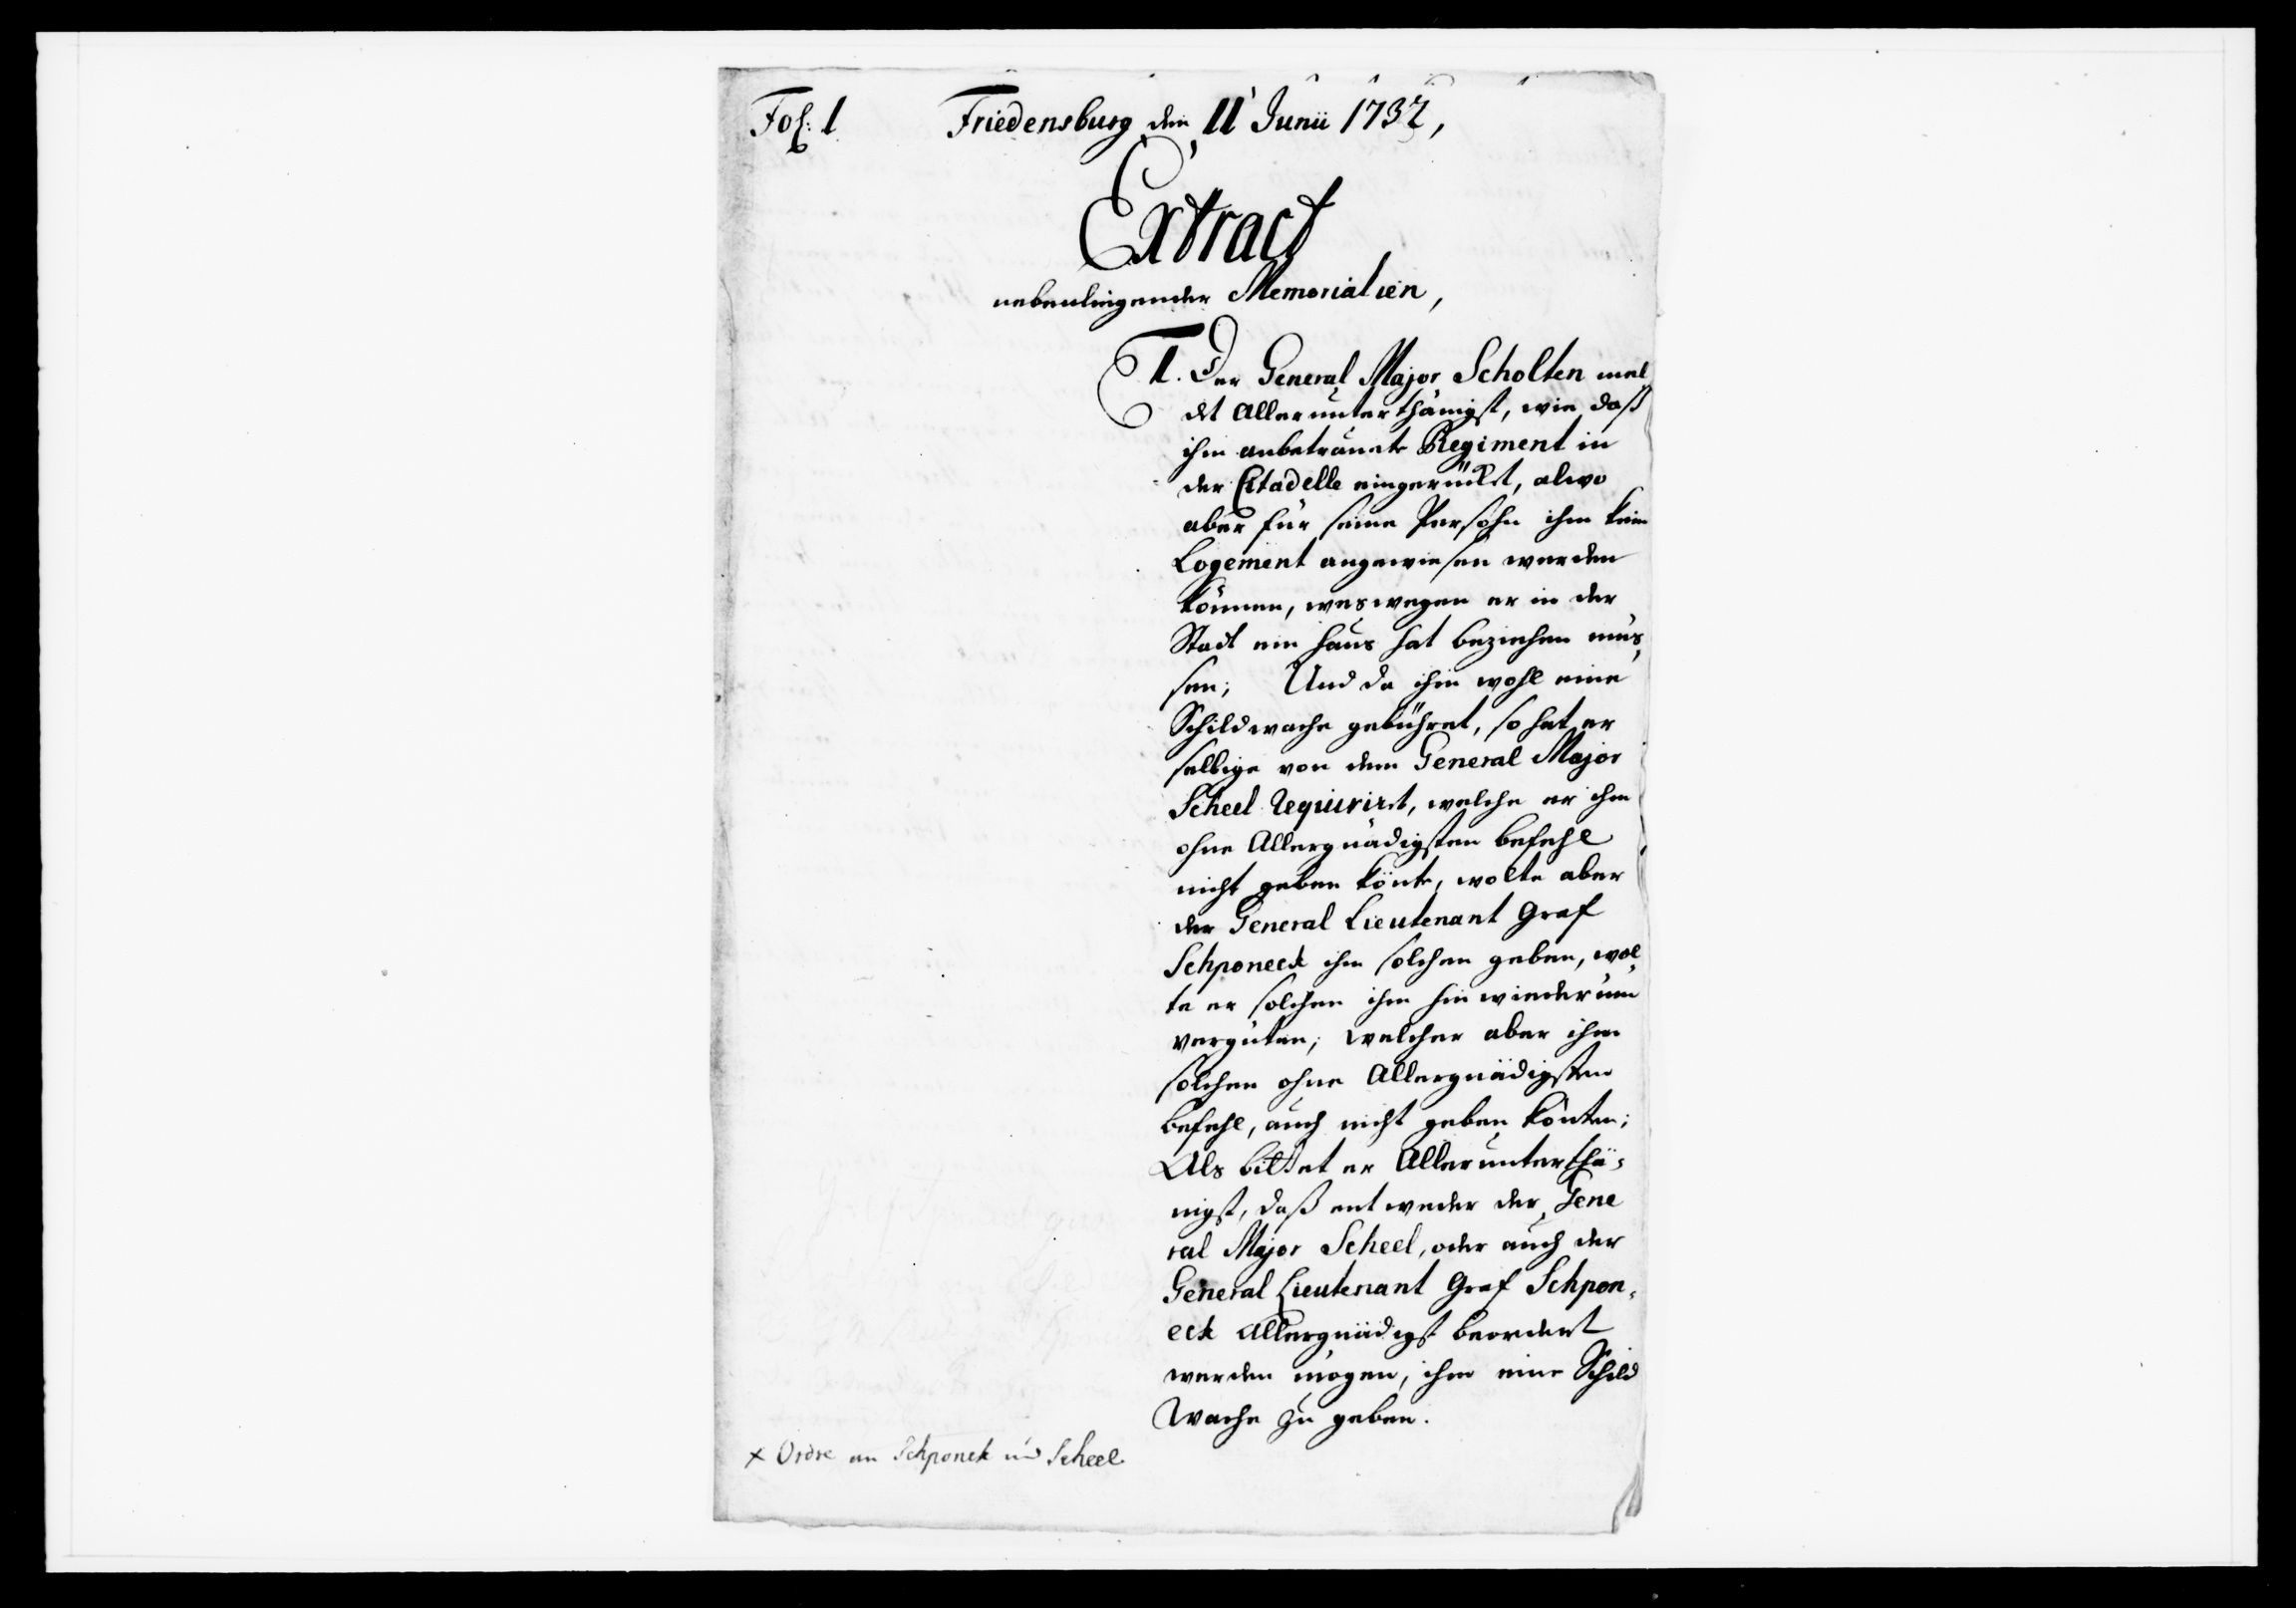 Fol: 1 Friedensburg den 11 Junii 1732,
Extract
nebenliegender Memorialien,
1. Der General Major Scholten mel
det Allerunterthänigst, wie daß
ihm anbetraute Regiment in
der Citadelle eingerückt, alwo
aber für seine Persohn ihm kein
Logement angewiesen werden
können, weswegen er in der
Stadt ein Haus hat beziehen müs,
sen; Und da ihm wohl eine
Schildwache gebühret, so hat er
selbige von dem General Major
Scheel requirirt, welche er ihm
ohne Allergnädigsten befehl
nicht geben könte, wolte aber
der General Lieutenant Graf
Schponeck ihm solchen geben, wol
te er solchen ihm hinwiederum
vergüten; welcher aber ihm
solchen ohne Allergnädigsten
befehl, auch nicht geben könten;
Als bittet er Allerunterthä-
nigst, daß entweder der Gene
ral Major Scheel, oder auch der
General Lieutenant Graf Schpon-
eck Allergnädigst beordert
werden mögen, ihm eine Schild
Wache zu geben.
x Ordre an Schponek und Scheel